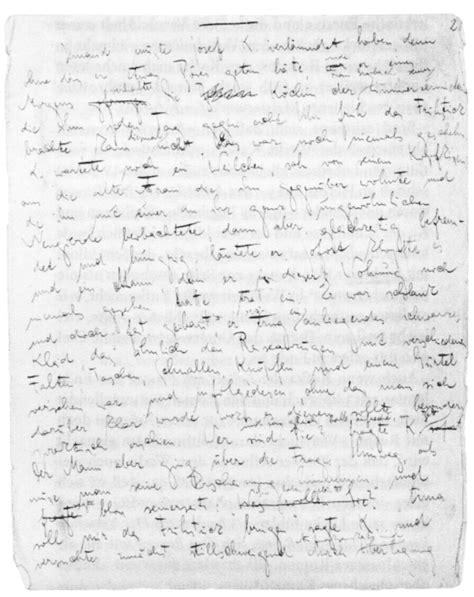 2
Jemand mußte Josef K. verleumdet haben, denn
ohne daß er etwas Böses getan hätte, wurde er eines
Morgens verhaftet. Die Köchin der Zimmervermieterin
die ihm jeden Tag gegen acht Uhr früh das Frühstück
brachte, kam diesmal nicht. Das war noch niemals geschehn.
K. wartete noch ein Weilchen, sah von seinem Kopfkissen
aus die alte Frau die ihm gegenüber wohnte und
die ihn mit einer an ihr ganz ungewöhnlichen
Neugierde beobachtete, dann aber gleichzeitig befrem-
det und hungrig läutete er. Sofort klopfte es
und ein Mann, den er in dieser Wohnung noch
niemals gesehen hatte trat ein. Er war schlank
und doch fest gebaut er trug anliegendes schwarzes
Kleid, das ähnlich den Reiseanzügen mit verschiedenen
Falten, Taschen, Schnallen, Knöpfen und einem Gürtel
versehen war und infolgedessen, ohne daß man sich
darüber klar wurde, wozu es dienen sollte, besonders
praktisch erschien. Wer sind Sie? fragte K.
Der Mann aber ging über die Frage hinweg, als
müsse man seine Erscheinung hinnehmen und
sagte bloß seinerseits: Anna
soll mir das Frühstück bringen sagte K. und
versuchte zunächst stillschweigend durch Überlegung